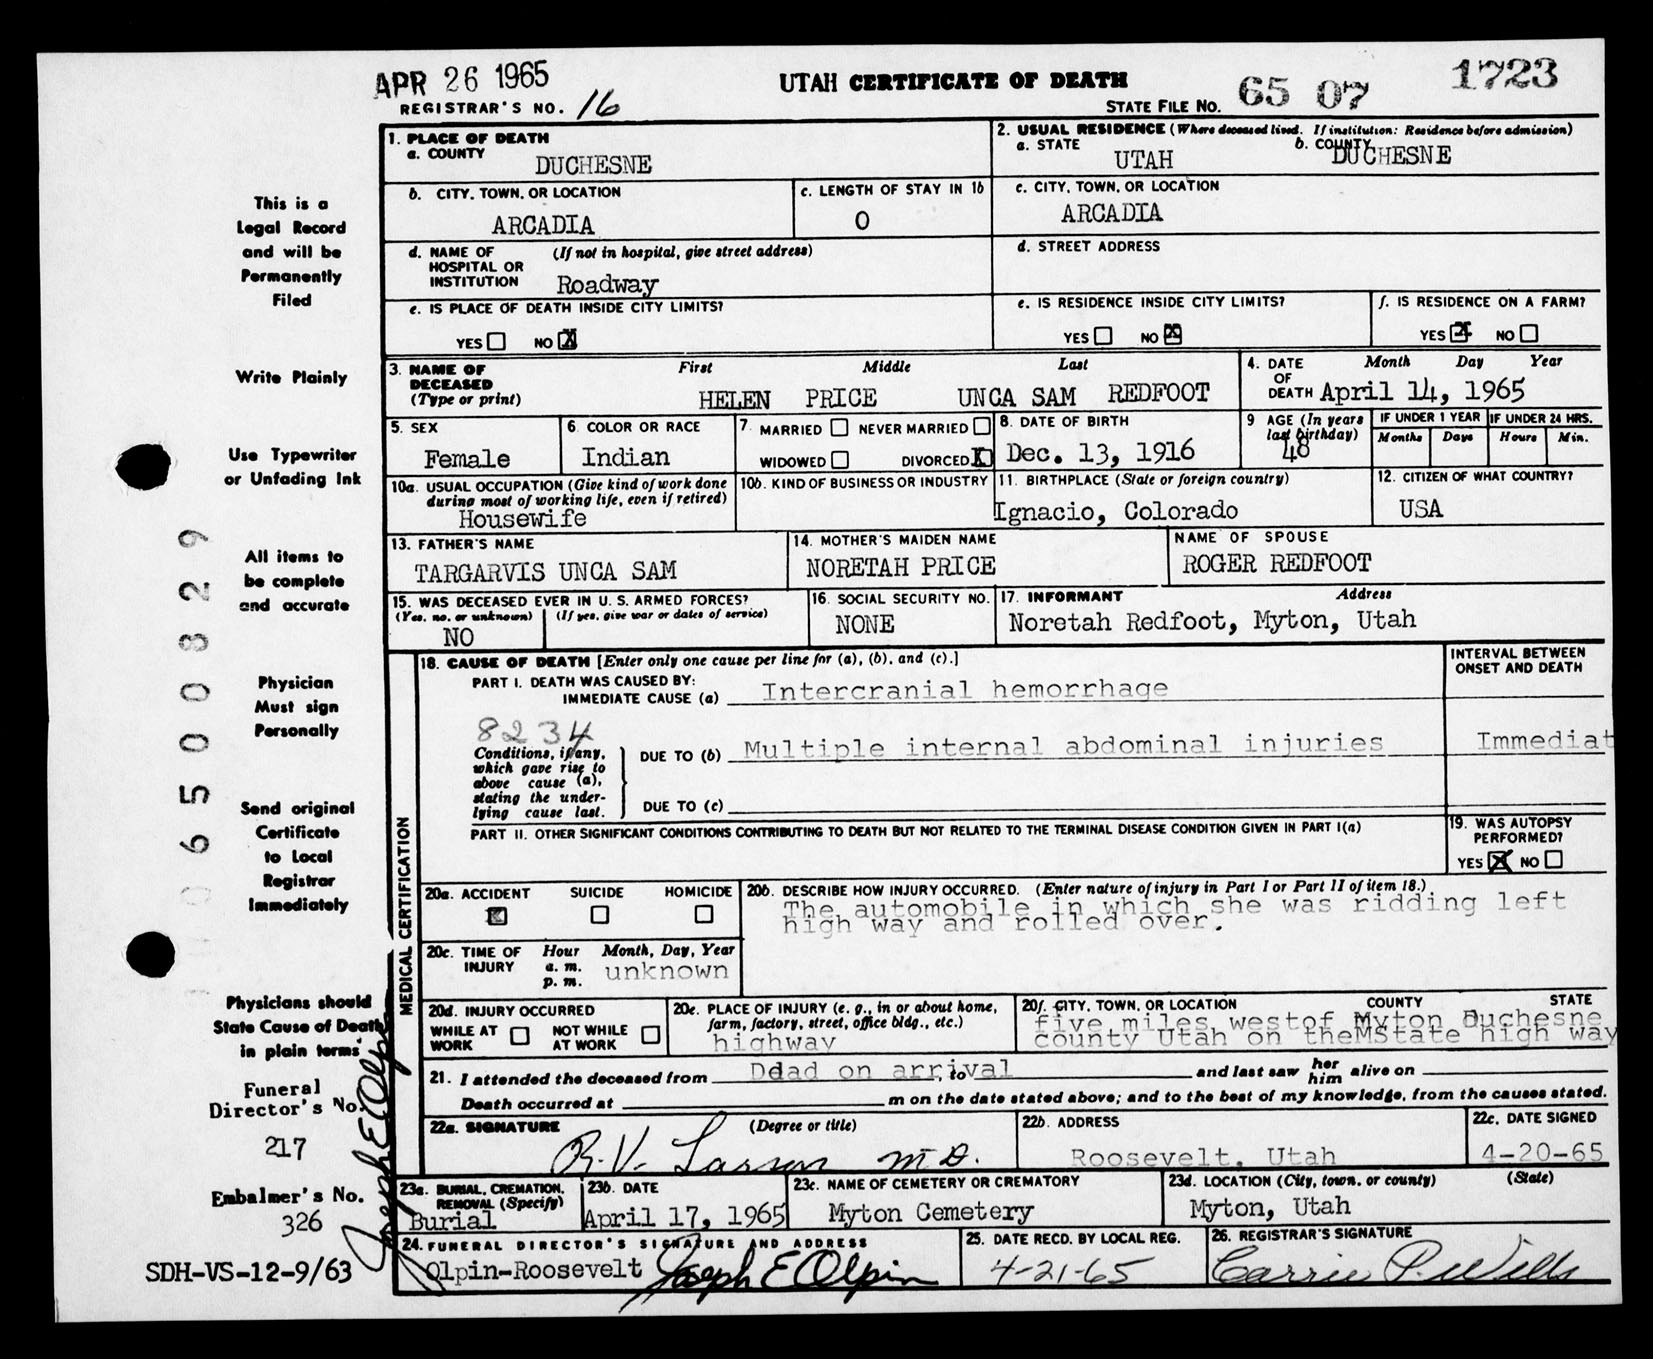 APR 26 1965
UTAH CERTIFICATE OF DEATH
REGISTRAR'S NO. 16
STATE FILE NO. 65 07 1723
This is a
Legal Record
and will be
Permanently
Filed
Write Plainly
Use Typewriter
or Unfading Ink
All items to
be complete
and accurate
Physician
Must sign
Personally
Send original
Certificate
to Local
Registrar
Immediately
Physicians should
State Cause of Death
in plain terms
Funeral
Director's No.
217
Embalmer's No.
326
SDH-VS-12-9/63
0 6 5 0 0 8 2 9
Joseph E Olpin
1. PLACE OF DEATH
a. COUNTY
DUCHESNE
2. USUAL RESIDENCE (Where deceased lived. If institution: Residence before admission)
a. STATE
UTAH
b. COUNTY
DUCHESNE
b. CITY, TOWN, OR LOCATION
ARCADIA
c. LENGTH OF STAY IN 1b
0
c. CITY, TOWN, OR LOCATION
ARCADIA
d. NAME OF HOSPITAL OR INSTITUTION
(If not in hospital, give street address)
Roadway
d. STREET ADDRESS
e. IS PLACE OF DEATH INSIDE CITY LIMITS?
YES NO X
e. IS RESIDENCE INSIDE CITY LIMITS?
YES NO X
f. IS RESIDENCE ON A FARM?
YES X NO
3. NAME OF DECEASED (Type or print)
First Middle Last
HELEN PRICE UNCA SAM REDFOOT
4. DATE OF DEATH
Month Day Year
April 14, 1965
5. SEX
Female
6. COLOR OR RACE
Indian
7. MARRIED NEVER MARRIED
WIDOWED DIVORCED X
8. DATE OF BIRTH
Dec. 13, 1916
9 AGE (In years last birthday)
48
IF UNDER 1 YEAR
Months Days
IF UNDER 24 HRS.
Hours Min.
10a. USUAL OCCUPATION (Give kind of work done during most of working life, even if retired)
Housewife
10b. KIND OF BUSINESS OR INDUSTRY
11. BIRTHPLACE (State or foreign country)
Ignacio, Colorado
12. CITIZEN OF WHAT COUNTRY?
USA
13. FATHER'S NAME
TARGARVIS UNCA SAM
14. MOTHER'S MAIDEN NAME
NORETAH PRICE
NAME OF SPOUSE
ROGER REDFOOT
15. WAS DECEASED EVER IN U. S. ARMED FORCES?
(Yes, no, or unknown) (If yes, give war or dates of service)
NO
16. SOCIAL SECURITY NO.
NONE
17. INFORMANT Address
Noretah Redfoot, Myton, Utah
MEDICAL CERTIFICATION
18. CAUSE OF DEATH [Enter only one cause per line for (a), (b), and (c).]
INTERVAL BETWEEN ONSET AND DEATH
PART I. DEATH WAS CAUSED BY:
IMMEDIATE CAUSE (a) Intercranial hemorrhage
8234
Conditions, if any, which gave rise to above cause (a), stating the underlying cause last.
DUE TO (b) Multiple internal abdominal injuries
Immediat
DUE TO (c)
PART II. OTHER SIGNIFICANT CONDITIONS CONTRIBUTING TO DEATH BUT NOT RELATED TO THE TERMINAL DISEASE CONDITION GIVEN IN PART I(a)
19. WAS AUTOPSY PERFORMED?
YES X NO
20a. ACCIDENT SUICIDE HOMICIDE
X
20b. DESCRIBE HOW INJURY OCCURRED. (Enter nature of injury in Part I or Part II of item 18.)
The automobile in which she was ridding left
high way and rolled over.
20c. TIME OF INJURY
Hour Month, Day, Year
a. m.
p. m.
unknown
20d. INJURY OCCURRED
WHILE AT WORK NOT WHILE AT WORK
20e. PLACE OF INJURY (e. g., in or about home, farm, factory, street, office bldg., etc.)
highway
20f. CITY, TOWN, OR LOCATION COUNTY STATE
five miles westof Myton Duchesne
county Utah on theMState high way
21. I attended the deceased from Ddad on arrival, to and last saw her him alive on
Death occurred at m on the date stated above; and to the best of my knowledge, from the causes stated.
22a. SIGNATURE (Degree or title)
R. V. Larsen M D.
22b. ADDRESS
Roosevelt, Utah
22c. DATE SIGNED
4-20-65
23a. BURIAL, CREMATION, REMOVAL (Specify)
Burial
23b. DATE
April 17, 1965
23c. NAME OF CEMETERY OR CREMATORY
Myton Cemetery
23d. LOCATION (City, town, or county) (State)
Myton, Utah
24. FUNERAL DIRECTOR'S SIGNATURE AND ADDRESS
Olpin-Roosevelt Joseph E Olpin
25. DATE RECD. BY LOCAL REG.
4-21-65
26. REGISTRAR'S SIGNATURE
Carrie P. Wills